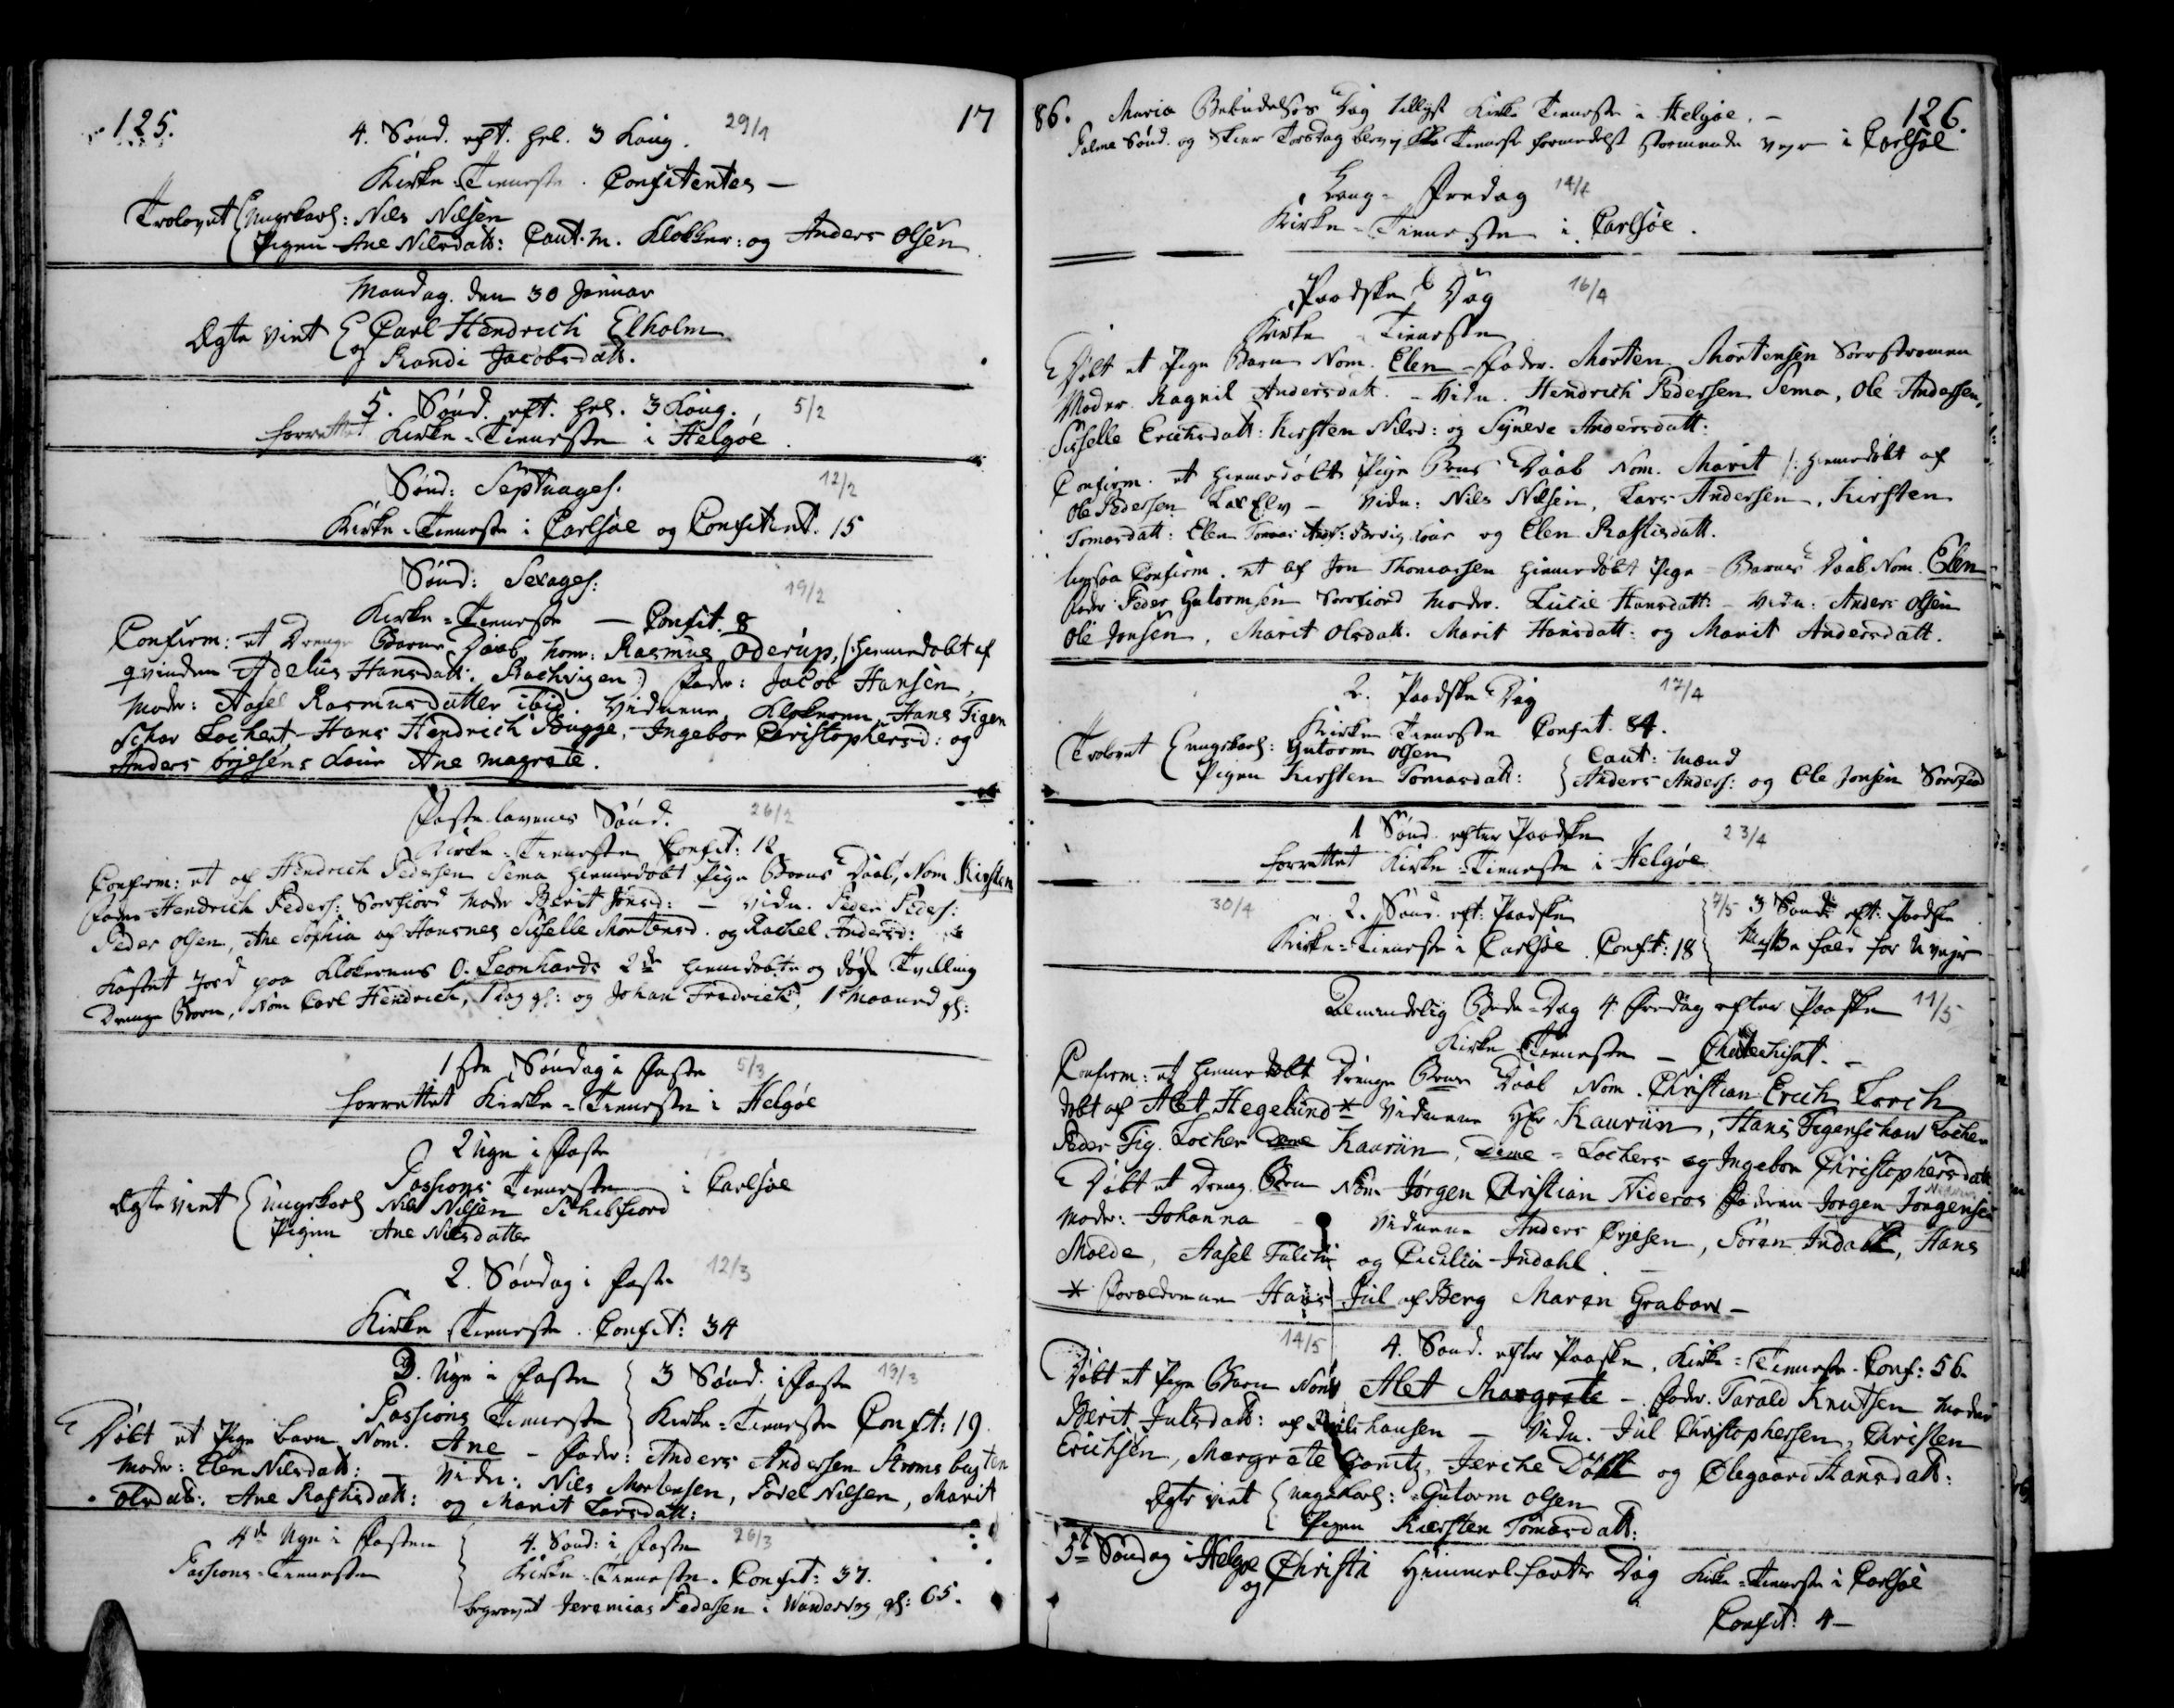 125. 17
4. Sønd. eft. hel. 3 Kong. 29/1
Kirke-Tieneste. Confitentes –
Trolovet Ungkarl: Nils Nilsen
Pigen Ane Nilsdatt: Caut. M. Klokker: og Anders Olsen
Mandag den 30 Januar
Ægte viet Carl Hendrich Elholm
og Randi Jacobsdatt.
5. Sønd. eft. hel. 3 Kong. 5/2
forrettet Kirke-Tieneste i Helgøe.
Sønd: Septuages. 12/2
Kirke-Tieneste i Carlsøe og Confitent. 15
Sønd: Sexages: 19/2
Kirke-Tieneste – Confit. 8
Confirm: et Drenge Barns Daab, Nom: Rasmus Oderup, /: hiemedøbt af
qvinden Adelus Hansdatt: :/ Fader: Jacob Hansen,
Moder: Aasel Rasmusdatter ibid. Vidnerne Klokeren, Hans Figen
schov Lochert, Hans Hendrich Bugge, Ingebor Christophersd: og
Anders Erjesens Kone Ane Magrete.
Fastelavens Sønd. 26/2
Kirke-Tieneste Confit: 12
Confirm: et af Hendrich Pedersen Sema hiemedøbt Pige Barns Daab, Nom Kirsten
Fader Hendrich Peders: Sørfiord Moder Berit Jonsd: – Vidn. Peder Peders:
Peder Olsen, Ane Sophia af Hansnes Sisselle Mortensd. og Rachel Andersd:
Kastet Jord paa Klokerens O. Leonhards 2de hiemedøbte og døde Tvilling
Drenge Børn, Nom Carl Hendrich, 1 Dag gl: og Johan Fredrich, 1 Maaned gl:
1ste Søndag i Faste 5/3
forrettet Kirke-Tieneste i Helgøe
2 Uge i Faste
Passions Tieneste i Carlsøe
Ægte viet Ungkarl Nils Nilsen Schibsfiord
Pigen Ane Nilsdatter
2. Søndag i Faste 12/3
Kirke Tieneste. Confit: 34
3. Uge i Fasten 3 Sønd. i Faste 19/3
Passions Tieneste Kirke-Tieneste Confit: 19.
Døbt et Pige barn Nom. Ane – Fader: Anders Andersen Strømsbugten
Moder: Elen Nilsdatt: – Vidn: Nils Mortensen, Povel Nilsen, Marit
Olsdatt: Ane Rastisdatt: og Marit Larsdatt:
4de Uge i Fasten 4. Sønd: i Faste 26/3
Passions-Tieneste Kirke-Tieneste. Confit: 37.
begravet Jeremias Pedersen i Vandvog gl: 65.
86. Mariæ Bebudelses Dag tillyst Kirke Tieneste i Helgøe. – 126.
Palme Sønd. og Skier Torsdag blev ej Kke Tieneste formedelst stormende vejr i Carlsøe
Lang-Fredag 14/4
Kirke-Tieneste i Carlsøe.
Paaske Dag 16/4
Kirke-Tieneste
Døbt et Pige Barn Nom. Elen – Fader. Morten Mortensen Sørstrømen
Moder. Ragnil Andersdatt. – Vidn. Hendrich Pedersen Sema, Ole Andersen,
Sisselle Erichsdatt: Kirsten Nilsd: og Syneve Andersdatt:
Confirm. et hiemedøbt Pige Barns Daab Nom. Marit /: hiemedøbt af
Ole Pedersen LaxElv – Vidn: Nils Nilsen, Lars Andersen, Kirsten
Tomasdatt: Elen Tomas og Elen Rastisdatt.
ligesaa Confirm. et af Jon Thomassen hiemedøbt Pige-Barns Daab Nom. Elen
Fader: Peder Gutormsen Sørfiord Moder. Lucie Hansdatt: – Vidn: Anders Olsen
Ole Jonsen, Marit Olsdatt. Marit Hansdatt: og Marit Andersdatt.
2. Paaske Dag 17/4
Kirke Tieneste Confit. 84.
Trolovet Ungkarl: Gutorm Olsen Caut: Mænd
Pigen Kirsten Tomasdatt: Anders Anders: og Ole Jonsen Sørfiord
1 Sønd. efter Paaske 23/4
forrettet Kirke-Tieneste i Helgøe
30/4 2. Sønd. eft: Paaske 7/5 3 Sønd: eft: Paaske
Kirke-Tieneste i Carlsøe. Confit: 18 Messe fald for Uvejr
Almindelig Bede-Dag 4 Fredag efter Paaske 11/5
Kirke Tieneste – Chatechisat. –
Confirm: et hiemedøbt Drenge Barns Daab Nom. Christian Erich Lorch
døbt af Alet Hegelund * Vidnerne Hr Kauriin, Hans Figenschow Locher
Peder Fig. Locher Dene Kauriin, Dene-Lochers og Ingebor Christophersdatt
Døbt et Dreng Barn Nom Jørgen Christian Nideros Faderen Jørgen Jørgensen
Moder: Johanna – Vidnerne Anders Erjesen, Søren Indahl, Hans
Molde, Aasel Falch og Cicilia Indahl.
* Forældrene Hans Jul af Berg Maren Grabow –
14/5 4. Sønd. efter Paaske, Kirke-Tieneste. Conf: 56.
Døbt et Pige Barn Nom Alet Margrete – Fader. Tarald Knutsen Moder
Berit Julsdatt: af – Vidn. Jul Christophersen, Christen
Erichsen, Margrete Gamst, Jerche Døkk og Olegaard Hansdatt:
Ægte viet Ungekarl: Gutorm Olsen
Pigen Kiersten Tomasdatt:
5te Søndag i Helgøe
og Christi Himmelfarts Dag Kirke-Tieneste i Carlsøe
Confit: 4 –